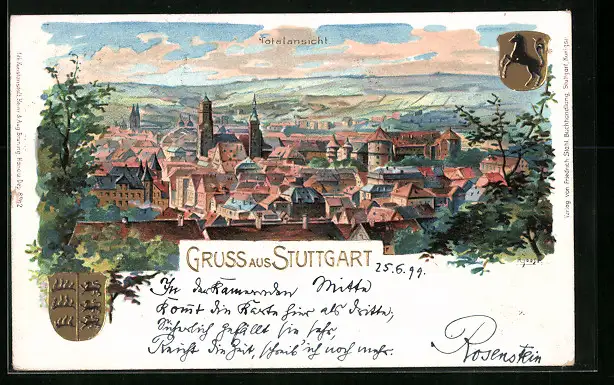 Totalansicht
GRUSS AUS STUTTGART
25.6.99.
In der Kamernden Mitte
Komt die Karte hier als dritte,
Sicherlich gefällt sie sehr,
Reicht die Zeit, schreib' ich noch mehr.
Rosenstein
Verlag von Friedrich Stahl, Buchhandlung, Stuttgart